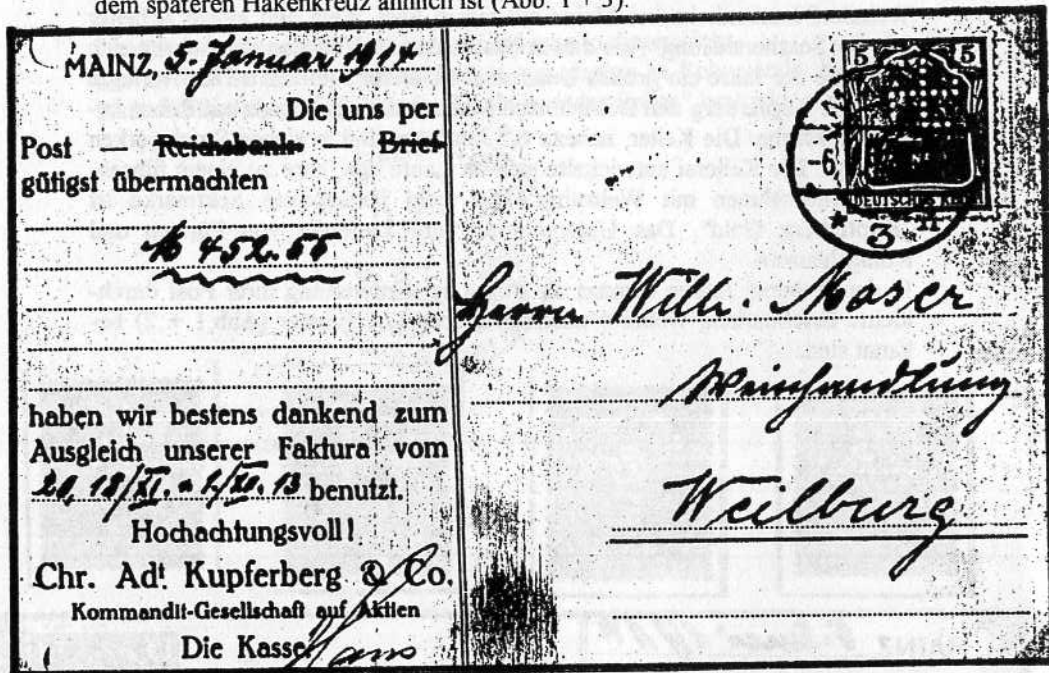 dem späteren Hakenkreuz ähnlich ist (Abb. 1 + 3).
MAINZ, 5. Januar 1914
Die uns per
Post – Reichsbank – Brief
gütigst übermachten
M 452.55
haben wir bestens dankend zum
Ausgleich unserer Faktura vom
18/XI. 1/XII. 13 benutzt.
Hochachtungsvoll!
Chr. Adt Kupferberg & Co.
Kommandit-Gesellschaft auf Aktien
Die Kasse:
5 5
DEUTSCHES REICH
-6.
3
Herrn Wilh. Moser
Weinhandlung
Weilburg